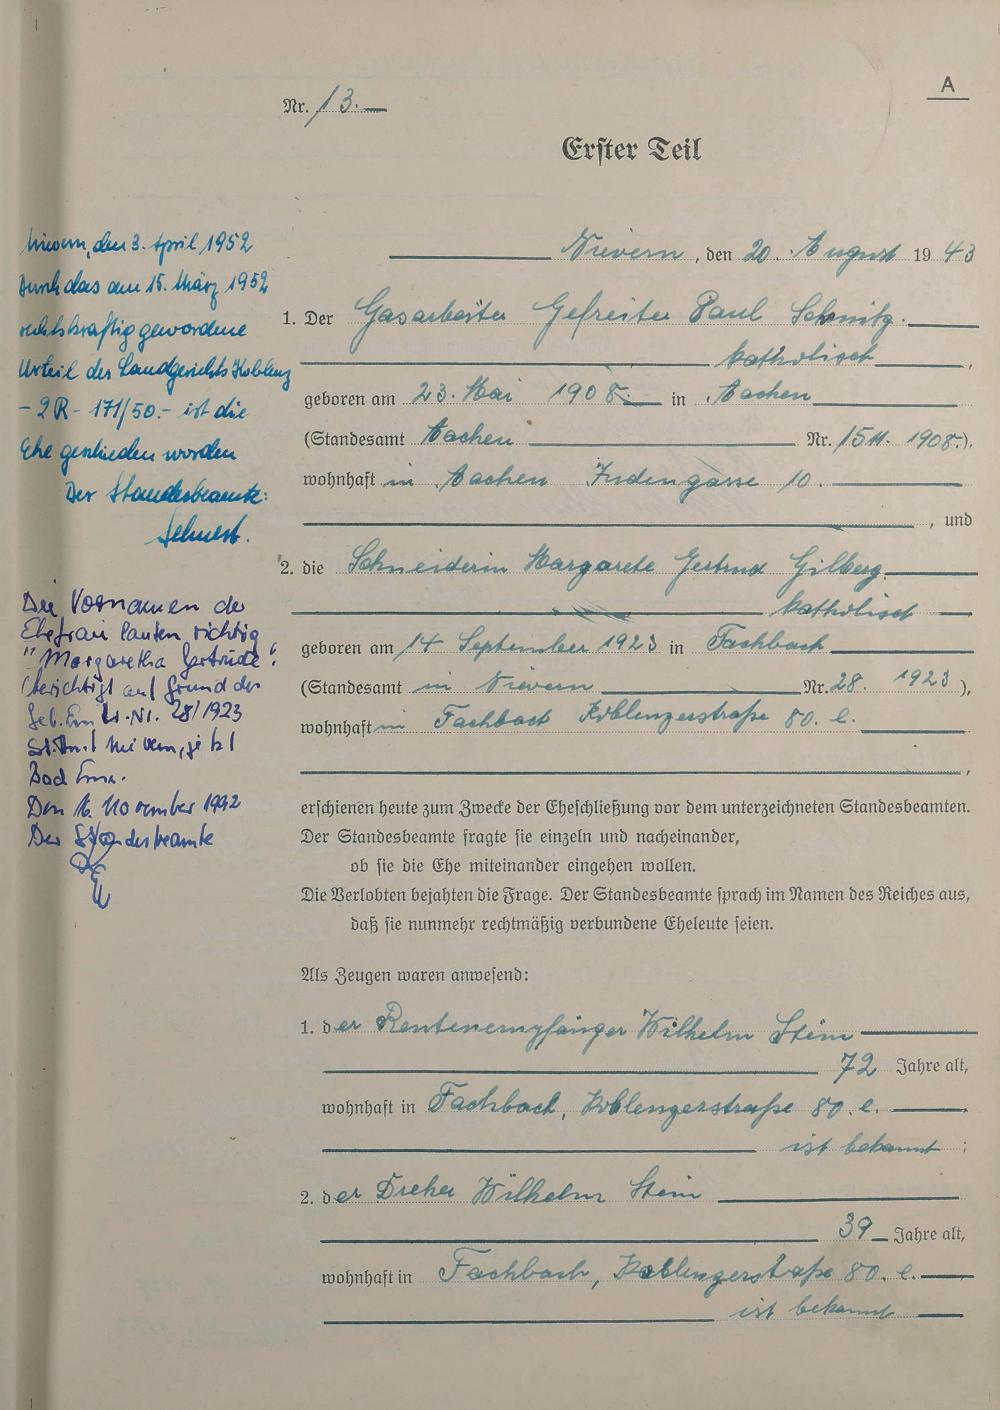 A
Nr. 13.
Erster Teil
Nievern, den 20. August 1943
1. Der Gasarbeiter Gefreiter Paul Schmitz.
katholisch,
geboren am 23. Mai 1908. in Aachen
(Standesamt Aachen Nr. 1511. 1908.),
wohnhaft in Aachen Indengasse 10.
, und
2. die Schneiderin Margarete Gertrud Gilberg.
katholisch
geboren am 14 September 1923 in Fachbach
(Standesamt in Nievern Nr. 28. 1923),
wohnhaft in Fachbach Koblenzerstraße 80. e.
,
erschienen heute zum Zwecke der Eheschließung vor dem unterzeichneten Standesbeamten.
Der Standesbeamte fragte sie einzeln und nacheinander,
ob sie die Ehe miteinander eingehen wollen.
Die Verlobten bejahten die Frage. Der Standesbeamte sprach im Namen des Reiches aus,
daß sie nunmehr rechtmäßig verbundene Eheleute seien.
Als Zeugen waren anwesend:
1. der Rentenempfänger Wilhelm Stein
72 Jahre alt,
wohnhaft in Fachbach, Koblenzerstraße 80. e.
ist bekannt ;
2. der Dreher Wilhelm Stein
39 Jahre alt,
wohnhaft in Fachbach, Koblenzerstraße 80. e.
ist bekannt
Nievern, den 3. April 1952
Durch das am 15. März 1952
rechtskräftig gewordene
Urteil des Landgerichts Koblenz
- 2 R - 171/50. - ist die
Ehe geschieden worden
Der Standesbeamte:
Die Vornamen der
Ehefrau lauten richtig
"Margaretha Gertrude".
(berichtigt auf Grund der
Geb. Nr. 28/1923
St.Amt Nievern, jetzt
Bad Ems.
Den 16. November 1992
Der Standesbeamte